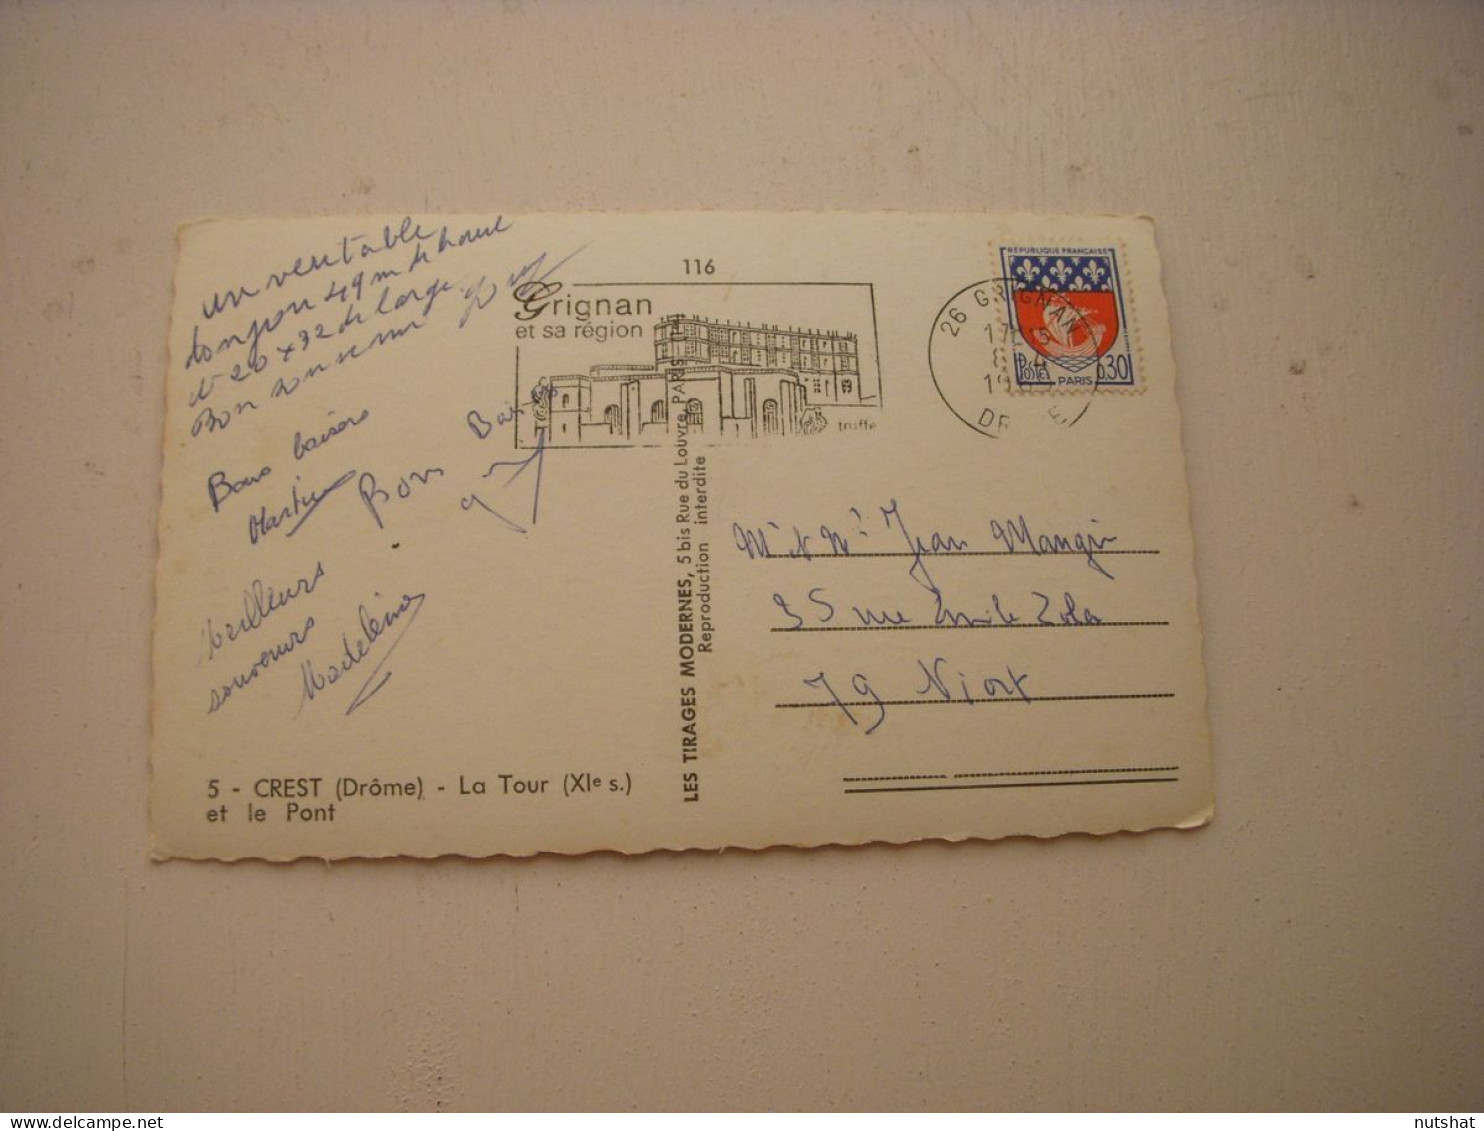 un veritable
donjon 49 m de haut
et 20 x 32 de large
Bon souvenir
Bons baisers
Martine
Bons Baisers
Meilleurs
souvenirs
Madeleine
5 - CREST (Drôme) - La Tour (XIe s.)
et le Pont
116
Grignan
et sa région
truffe
LES TIRAGES MODERNES, 5 bis Rue du Louvre, PARIS
Reproduction interdite
26 GRIGNAN
DROME
REPUBLIQUE FRANÇAISE
Postes
0,30
PARIS
Mr et Me Jean Mangin
35 rue Emile Zola
79 Niort
nutshat